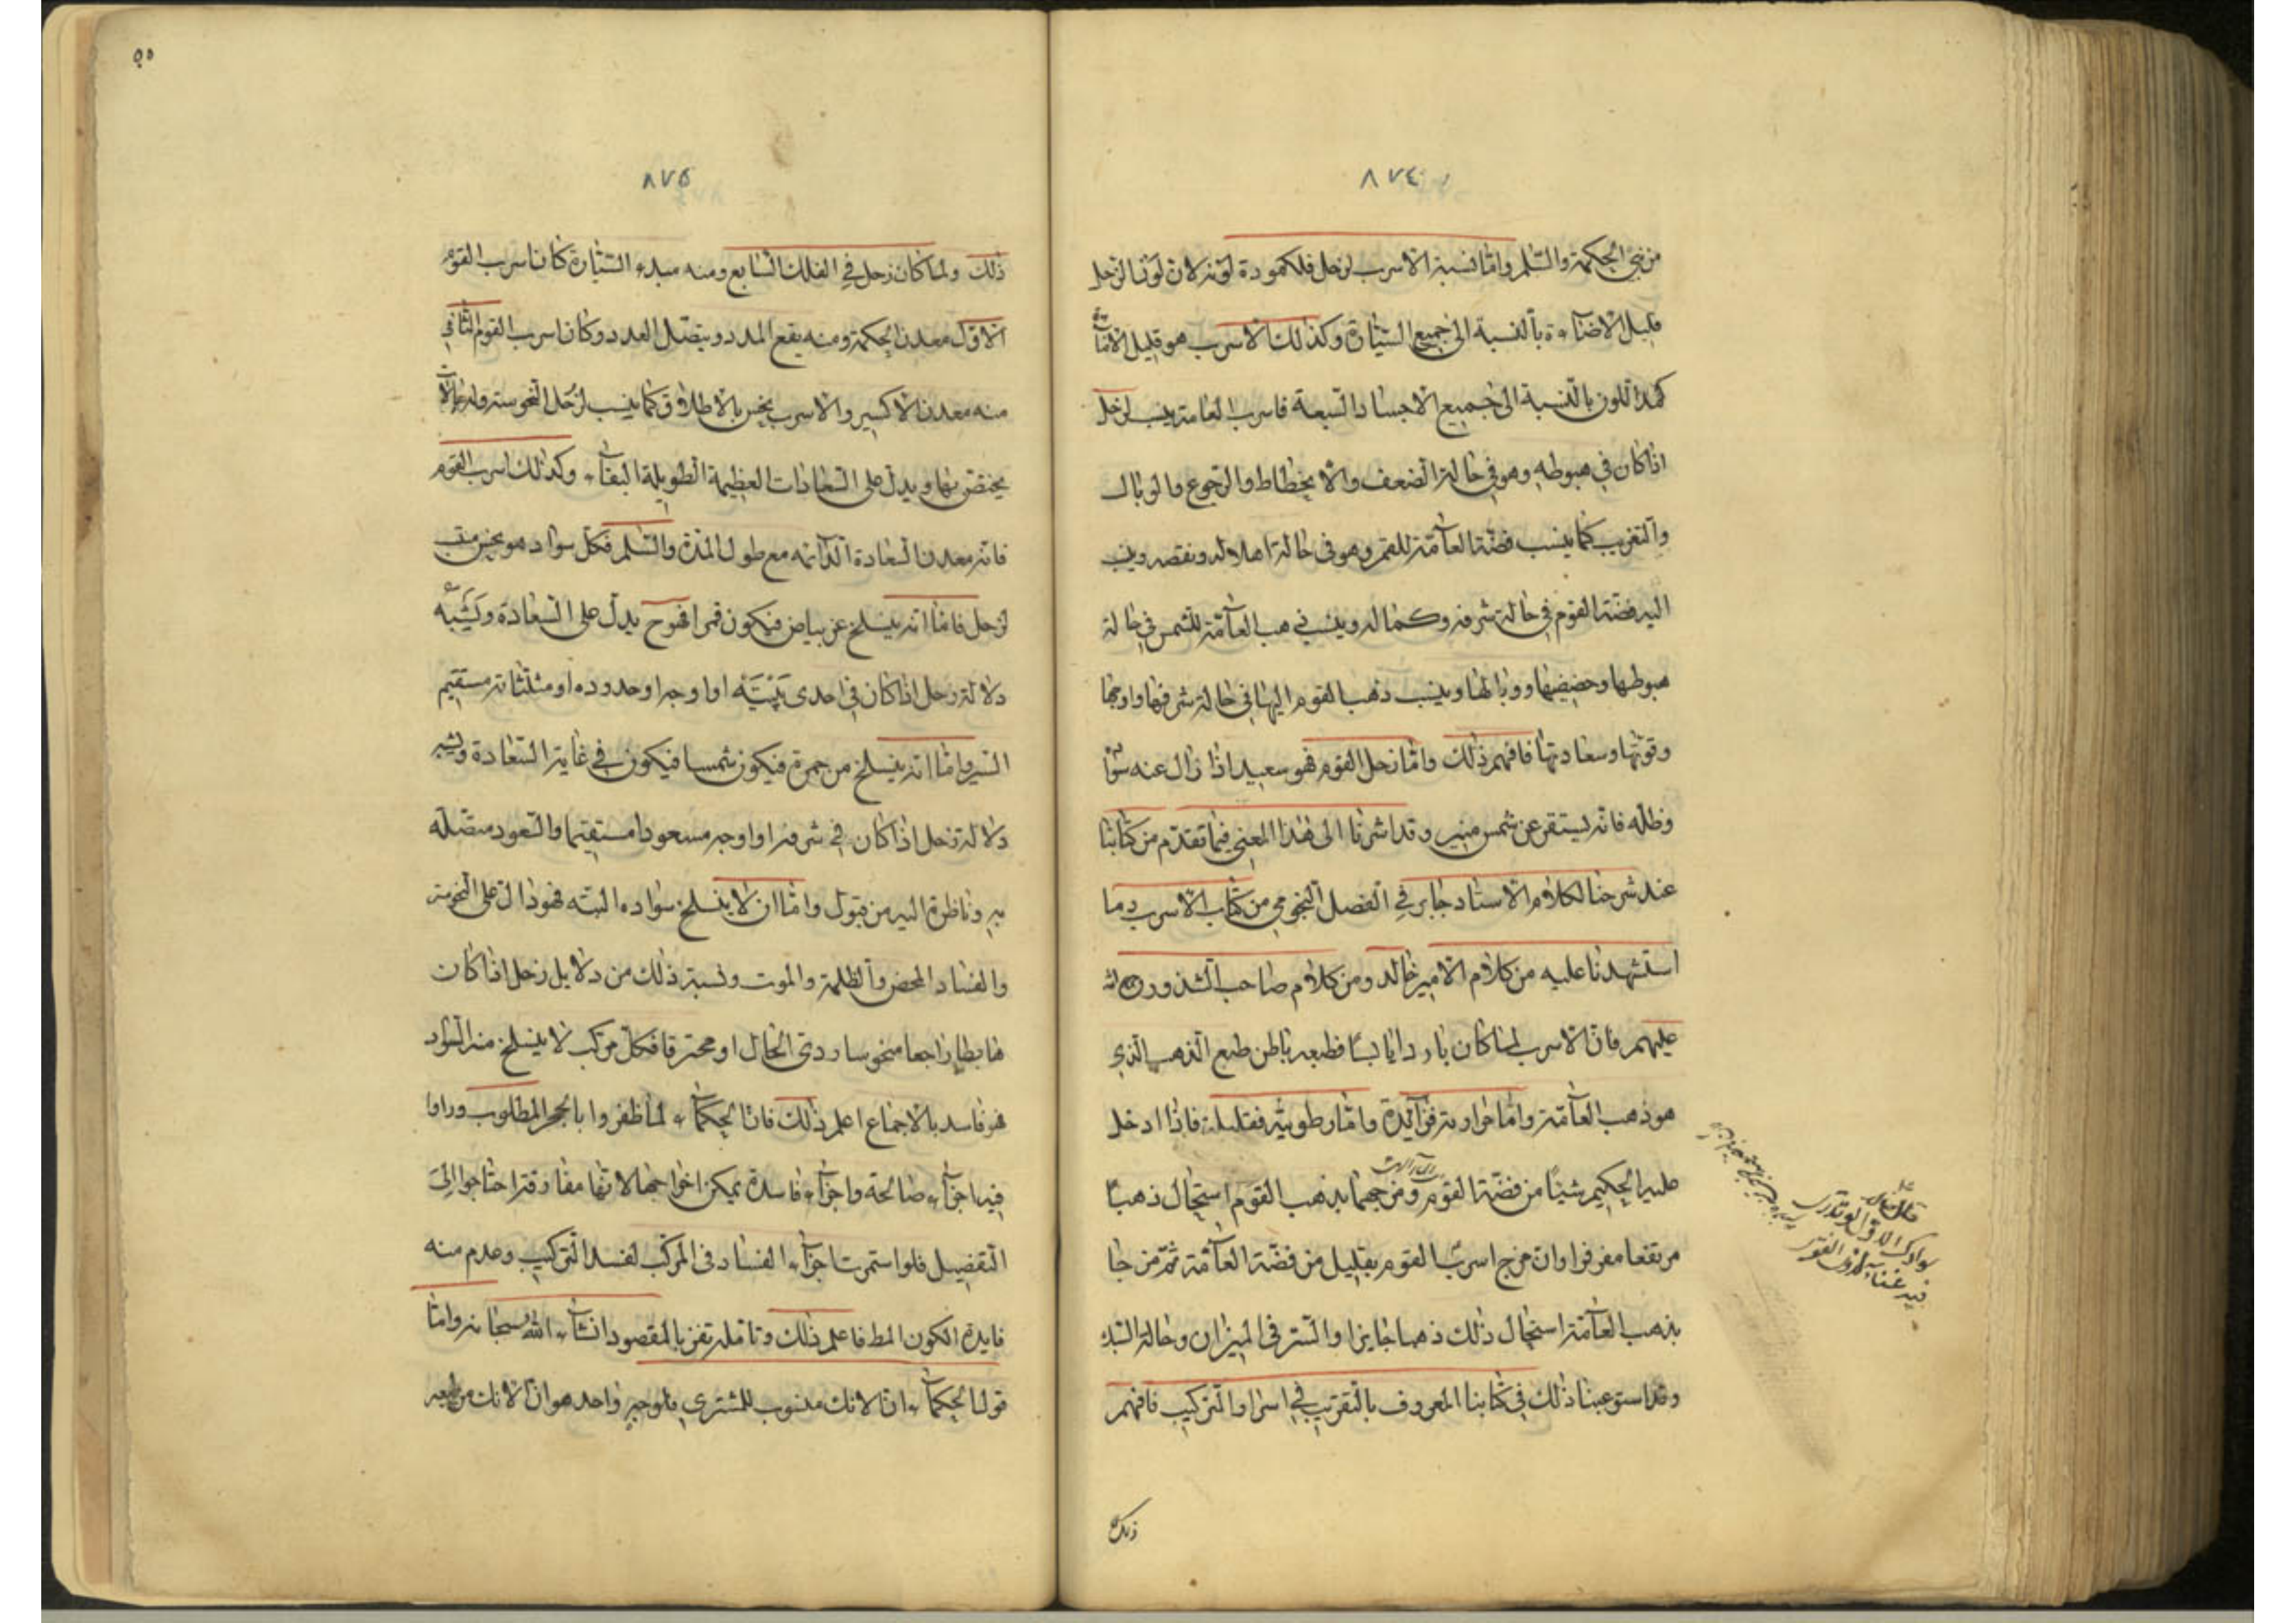 ٨٧٤
من بنى الحكمة والسلم واما نسبة الاسرب لزحل فلكمودة لونه لان لونا لزحل
قليل الاضاءة بالنسبة الى جميع السيارة وكذلك الاسرب هو قليل
كمد اللون بالنسبة الى جميع الاجساد السبعة فاسرب العامة ينسب لزحل
اذا كان في هبوطه وهو في حالة الضعف والانحطاط والرجوع والوبال
والتغريب كما ينسب فضة العامة للقمر وهو في حالة اهلاله ونقصه وينسب
اليه فضة القوم في حالة شرفه وكماله وينسب ذهب العامة للشمس في حالة
هبوطها وحضيضها ووبالها وينسب ذهب القوم اليها في حالة شرفها واوجها
وقوتها وسعادتها فافهم ذلك واما زحل القوم فهو سعيد اذا زال عنه سواد
وظله فانه يستقر عن شمس منير وقد اشرنا الى هذا المعنى فيما تقدم من كتابنا
عند شرحنا لكلام الاستاد جابر في الفصل النجومي من كتاب الاسرب وما
استشهدنا عليه من كلام الامير خالد ومن كلام صاحب الشذور
عليهم فان الاسرب لما كان باردا يابسا فطبعه باطن طبع الذهب الذي
هو ذهب العامة واما حرارته فزايدة واما رطوبته فقليلة فاذا ادخل
عليه الحكيم شيئا من فضة القوم ومزجهما بذهب القوم استحال ذهبا
مرتفعا مفرفرا وان مزج اسرب القوم بقليل من فضة العامة ثم مزجا
بذهب العامة استحال ذلك ذهبا جايزا والستر في الميزان وحالة السبك
وقد استوعبنا ذلك في كتابنا المعروف بالتقريب في اسرار التركيب فافهم
ذلك
٨٧٥
ذلك ولما كان زحل في الفلك السابع ومنه مبدء السيارة كان اسرب القوم
الاول معدن الحكمة ومنه يقع المدد ويتصل العدد وكان اسرب القوم الثاني
منه معدن الاكسير والاسرب نحس بالاطلاق كما ينسب لزحل النحوسة وله
يختص بها ويدل على السعادات العظيمة الطويلة البقاء وكذلك اسرب القوم
فانه معدن السعادة الدائمه مع طول المدة والسلم فكل سواد هو نحس
لزحل فاما انه ينسلخ عن بياض فيكون قمرا فهو ح يدل على السعادة ويشبه
دلالة زحل اذا كان في احدى بيتيه او اوجه او حدوده او مثلثاته مستقيم
السير واما انه ينسلخ من حمرة فيكون شمسا فيكون في غاية السعادة ويشبه
دلالة زحل اذا كان في شرفه او اوجه مسعودا مستقيما والسعود متصلة
به وناظرة اليه من قبول واما ان لا ينسلخ سواده البته فهو دال على النحوسة
والفساد المحض والظلمة والموت ونسبة ذلك من دلايل زحل اذا كان
هابطا راجعا منحوسا ردى الحال او محترقا فكل مركب لا ينسلخ منه السواد
هو فاسد بالاجماع اعلم ذلك فان الحكماء لما ظفروا بالحجر المطلوب وراوا
فيه اجزاء صالحة واجزاء فاسدة يمكن اخراجها لانها مفارقة احتاجوا الى
التفصيل فلو استمرت اجزاء الفساد في المركب لفسد التركيب وعدم منه
فايدة الكون المط فاعلم ذلك وتامله تفز بالمقصود انشاء الله سبحانه واما
قول الحكماء ان الانك منسوب للمشتري فلوجه واحد هو ان الانك من طبعه